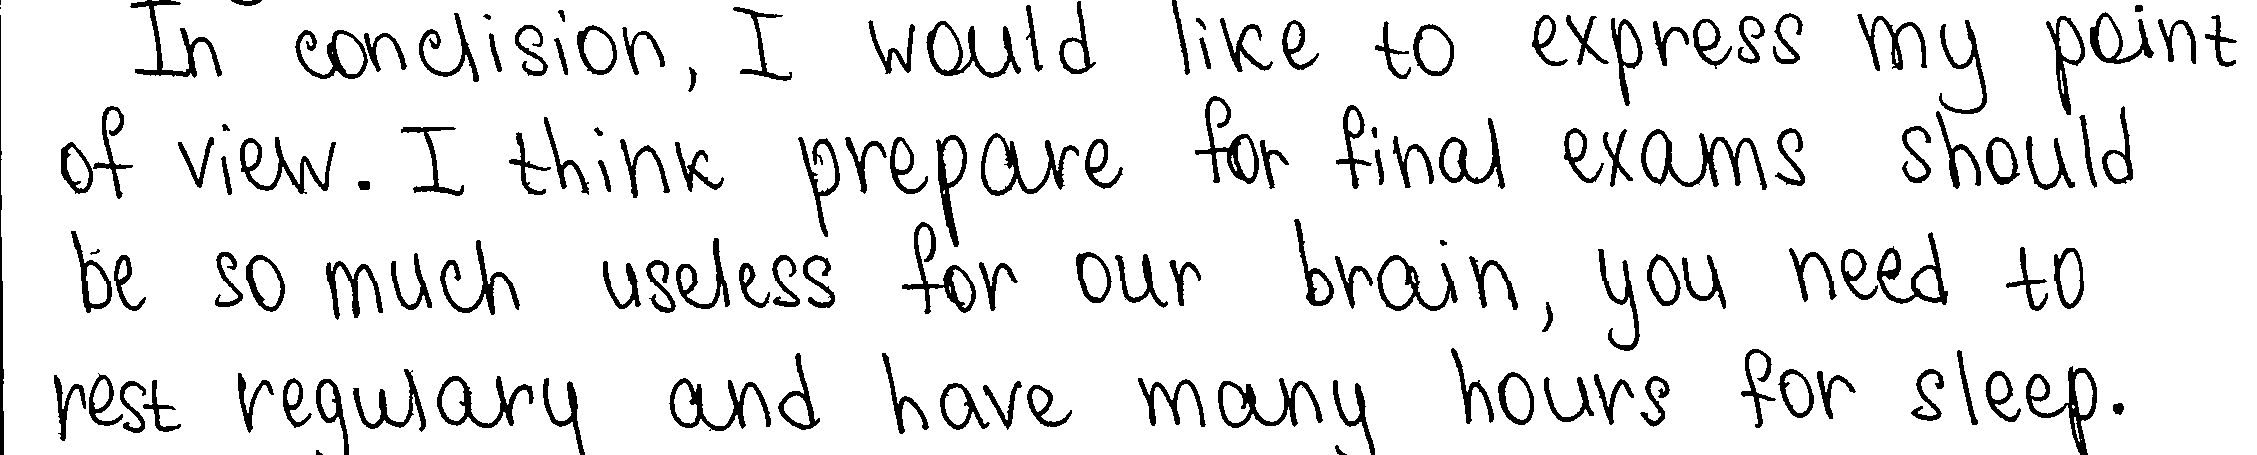 In conclision, I would like to express my point
of view. I think prepare for final exams should
be so much useless for our brain, you need to
rest regulary and have many hours for sleep.